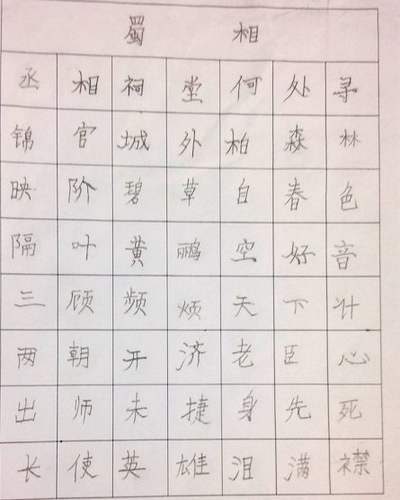 蜀相
丞相祠堂何处寻
锦官城外柏森林
映阶碧草自春色
隔叶黄鹂空好音
三顾频烦天下计
两朝开济老臣心
出师未捷身先死
长使英雄泪满襟